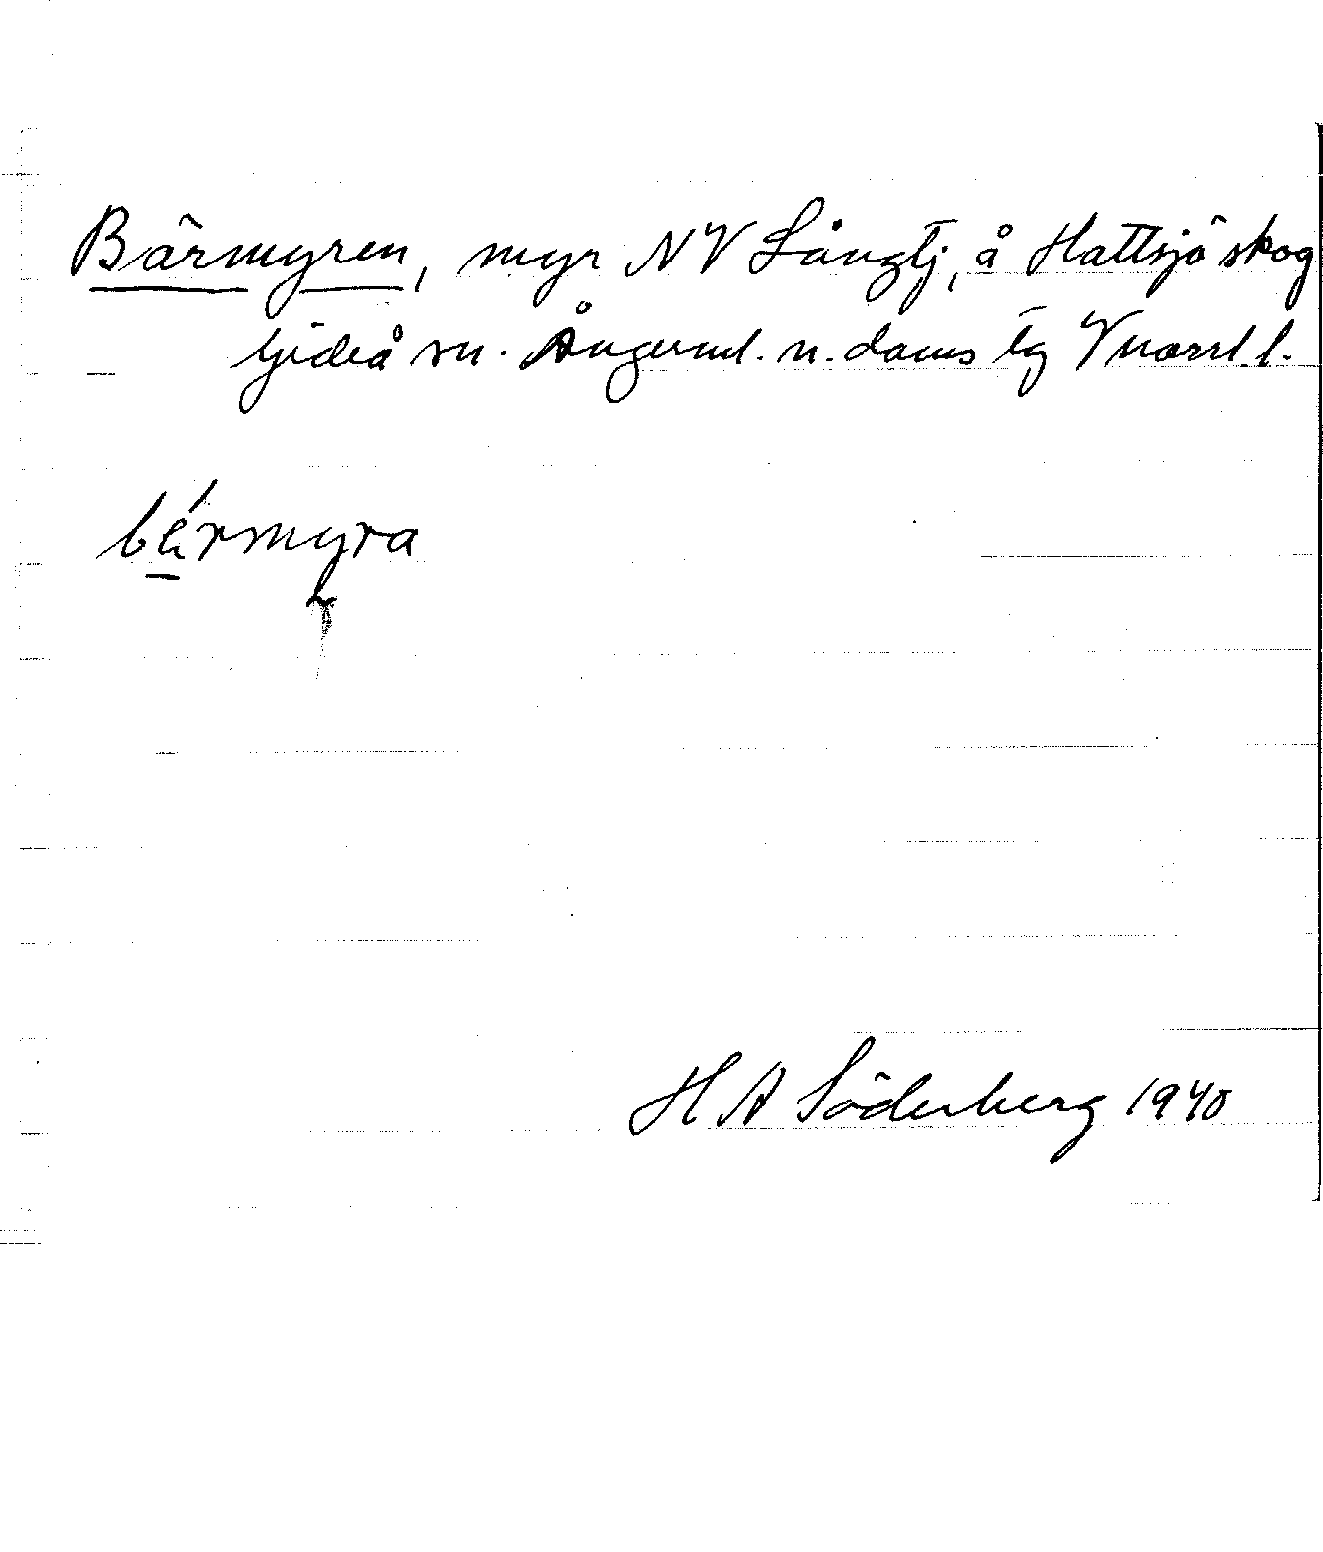 Bärmyren, myr NV Långtj, å Hattsjö skog
Gideå sn. Ångerml. n. doms tg Vnorrl. l.
bärmyra
H A Söderberg 1940